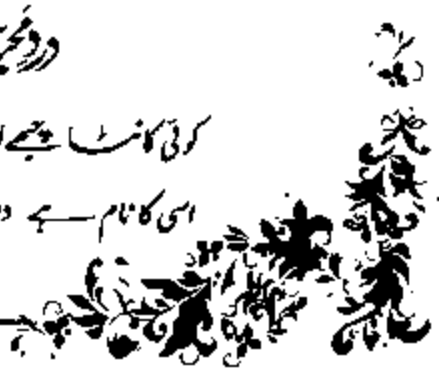 درد محبت
کوئی کانٹا چبھے
اسی کا نام ہے